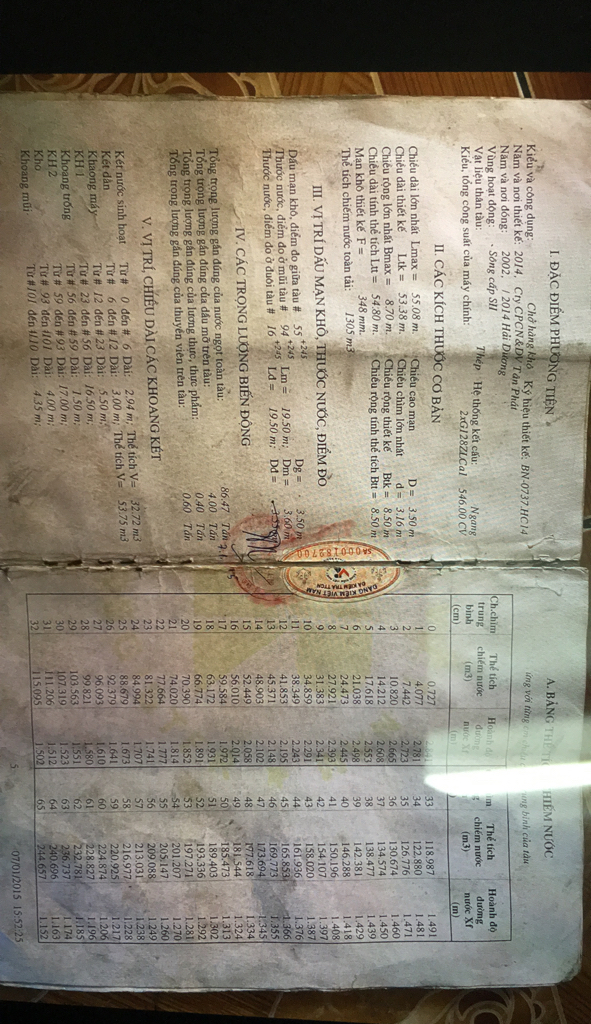 I. ĐẶC ĐIỂM PHƯƠNG TIỆN
Kiểu và công dụng: Chở hàng khô Ký hiệu thiết kế: BN-0737.HC14
Năm và nơi thiết kế: 2014, Cty CPCN &DV Tân Phát
Năm và nơi đóng: 2002, / 2014 Hải Dương
Vùng hoạt động: Sông cấp SII
Vật liệu thân tàu: Thép Hệ thống kết cấu: Ngang
Kiểu, tổng công suất của máy chính: 2xG128ZLCa1 546.00 CV
II. CÁC KÍCH THƯỚC CƠ BẢN
Chiều dài lớn nhất Lmax = 55.08 m. Chiều cao mạn D = 3.50 m
Chiều dài thiết kế Ltk = 53.38 m. Chiều chìm lớn nhất d = 3.16 m
Chiều rộng lớn nhất Bmax = 8.70 m. Chiều rộng thiết kế Btk = 8.50 m
Chiều dài tính thể tích Ltt = 54.80 m. Chiều rộng tính thể tích Btt = 8.50 m
Mạn khô thiết kế F = 348 mm.
Thể tích chiếm nước toàn tải: 1305 m3
III. VỊ TRÍ DẤU MẠN KHÔ, THƯỚC NƯỚC, ĐIỂM ĐO
Dấu mạn khô, điểm đo giữa tàu # 55 +245 Dg = 3.50 m
Thước nước, điểm đo ở mũi tàu # 94 +245 Lm = 19.50 m; Dm = 3.60 m
Thước nước, điểm đo ở đuôi tàu # 16 +245 Lđ = 19.50 m; Dđ =
IV. CÁC TRỌNG LƯỢNG BIẾN ĐỘNG
Tổng trọng lượng gần đúng của nước ngọt toàn tàu: 86.47 Tấn
Tổng trọng lượng gần đúng của dầu mỡ trên tàu: 4.00 Tấn
Tổng trọng lượng gần đúng của lương thực, thực phẩm: 0.40 Tấn
Tổng trọng lượng gần đúng của thuyền viên trên tàu: 0.60 Tấn
V. VỊ TRÍ, CHIỀU DÀI CÁC KHOANG KÉT
Két nước sinh hoạt Từ # 0 đến # 6 Dài: 2.94 m; Thể tích V= 32.72 m3
Két dằn Từ # 6 đến # 12 Dài: 3.00 m; Thể tích V= 53.75 m3
Khoang máy Từ # 12 đến # 23 Dài: 5.50 m;
KH 1 Từ # 23 đến # 56 Dài: 16.50 m;
Khoang trống Từ # 56 đến # 59 Dài: 1.50 m;
KH 2 Từ # 59 đến # 93 Dài: 17.00 m;
Kho Từ # 93 đến #101 Dài: 4.00 m;
Khoang mũi: Từ #101 đến #110 Dài: 4.15 m;
SA 0001189700
ĐĂNG KIỂM VIỆT NAM
ĐÃ KIỂM TRA TTCN
A. BẢNG THỂ TÍCH CHIẾM NƯỚC
ứng với từng trung bình của tàu
Ch.chìm trung bình (cm) Thể tích chiếm nước (m3) Hoành độ dương nước Xf Thể tích chiếm nước (m3) Hoành độ dương nước Xf (m)
0 0.727 33 118.987 1.491
1 4.077 2.781 34 122.880 1.481
2 7.442 2.723 35 126.776 1.471
3 10.820 2.665 36 130.674 1.460
4 14.212 2.608 37 134.574 1.450
5 17.618 2.553 38 138.477 1.439
6 21.038 2.498 39 142.381 1.429
7 24.473 2.445 40 146.288 1.418
8 27.921 2.393 41 150.196 1.408
9 31.383 2.341 42 154.107 1.397
10 34.859 2.291 43 158.020 1.387
11 38.349 2.243 44 161.936 1.376
12 41.853 2.195 45 165.853 1.366
13 45.371 2.148 46 169.773 1.355
14 48.903 2.102 47 173.694 1.345
15 52.449 2.058 48 177.618 1.334
16 56.010 2.014 49 181.544 1.324
17 59.584 1.972 50 185.473 1.313
18 63.172 1.931 51 189.403 1.302
19 66.774 1.891 52 193.336 1.292
20 70.390 1.852 53 197.271 1.281
21 74.020 1.814 54 201.207 1.270
22 77.664 1.777 55 205.147 1.260
23 81.322 1.741 56 209.088 1.249
24 84.994 1.707 57 213.031 1.238
25 88.679 1.673 58 216.977 1.228
26 92.379 1.641 59 220.925 1.217
27 96.093 1.610 60 224.874 1.206
28 99.821 1.580 61 228.827 1.196
29 103.563 1.551 62 232.781 1.185
30 107.319 1.523 63 236.737 1.174
31 111.206 1.512 64 240.696 1.163
32 115.095 1.502 65 244.657 1.152
5
07/01/2015 15:52:25